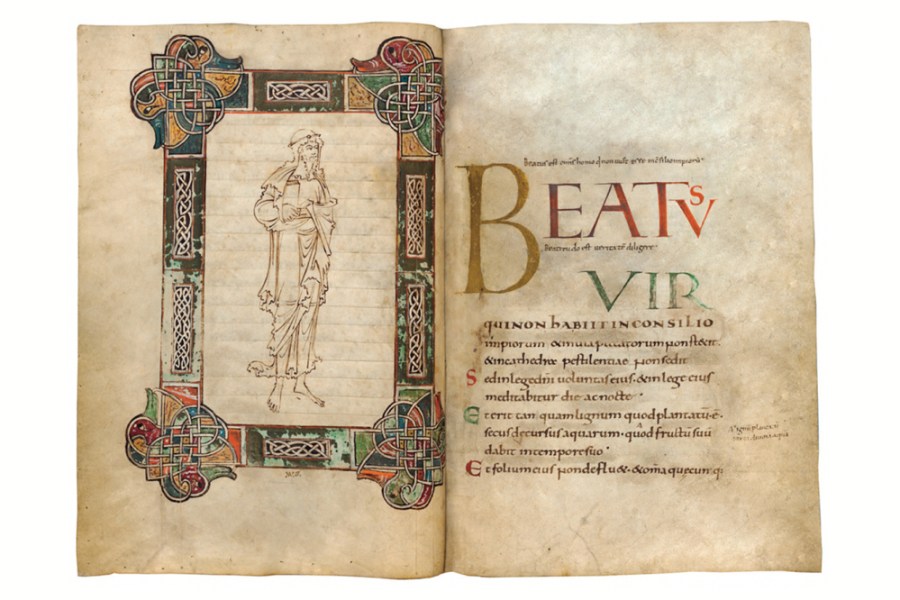 BEATVS
VIR
QUI NON hABIIT IN CONSILIO
impiorum & in uia peccatorum non stetit.
& in cathedra pestilentiae non sedit
Sed in lege dnī uoluntas eius. & in lege eius
meditabitur die ac nocte
Et erit tanquam lignum quod plantatū ē.
secus decursus aquarum. quod fructū suū
dabit in tempore suo
Et folium eius non deflu&. & om̄a quęcunq;